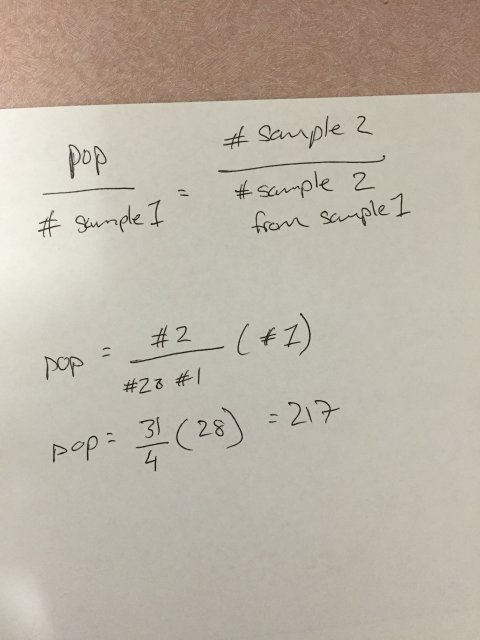 pop / # sample 1 = # sample 2 / # sample 2 from sample 1
pop = #2 / #2& #1 (#1)
pop = 31/4 (28) = 217